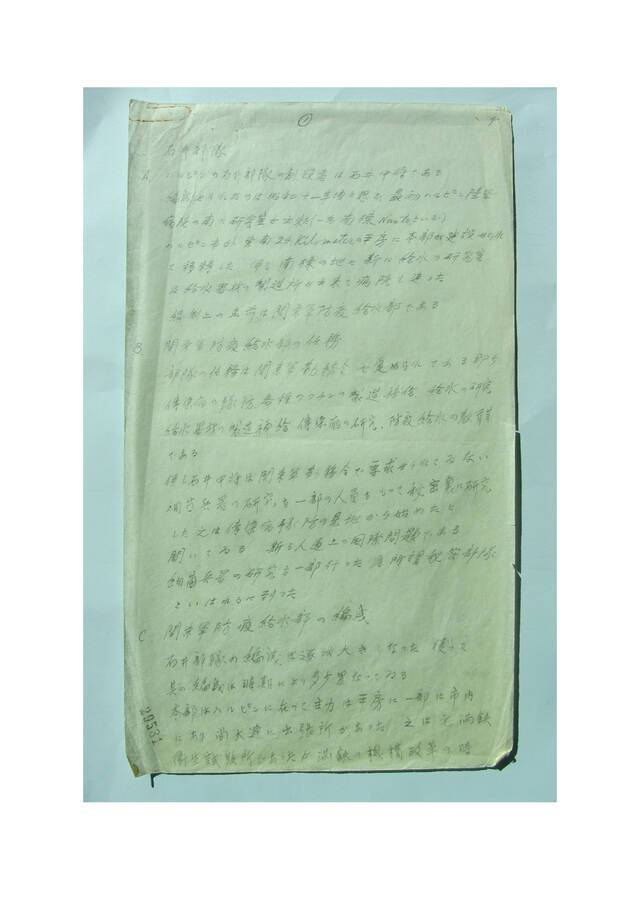 ①
石井部隊
A. ハルピンの石井部隊の創設者は石井中将である
編成せられたのは昭和十一年頃と思う 最初ハルピン陸軍
病院の南に研究室を (一名南棟 といふ)
ハルピン市から東南24Kilo meterの平房に本部が建設せられ
て移転した 但し南棟の地に新に給水の研究室
及給水器材の製造所が出来て病院と違った
編制上の名前は関東軍防疫給水部である
B. 関東軍防疫給水部の任務
部隊の任務は関東軍勤務令 てある即ち
傳染病の豫防、各種ワクチンの製造補給、給水の研究
給水器材の製造補給 傳染病の研究、防疫給水の教育等
である
但し石井中将は関東軍勤務令で要求せられてゐない
細菌兵器の研究を一部の人員をもって秘密裏に研究
した 之は傳染病豫防の見地から始めたと
聞いてゐる 斯る人道上の国際問題である
細菌兵器の研究を一部行った為所謂秘密部隊
といはれるに到った
C. 関東軍防疫給水部の編成
石井部隊の編成は逐次大きくなった 従って
其の編成は時期により多少異なってゐる
本部はハルピンに在って主力は平房に一部は市内
にあり 尚大連に出張所があった 之は元満鉄
衛生試験所であったが満鉄の機構改革の時
20531